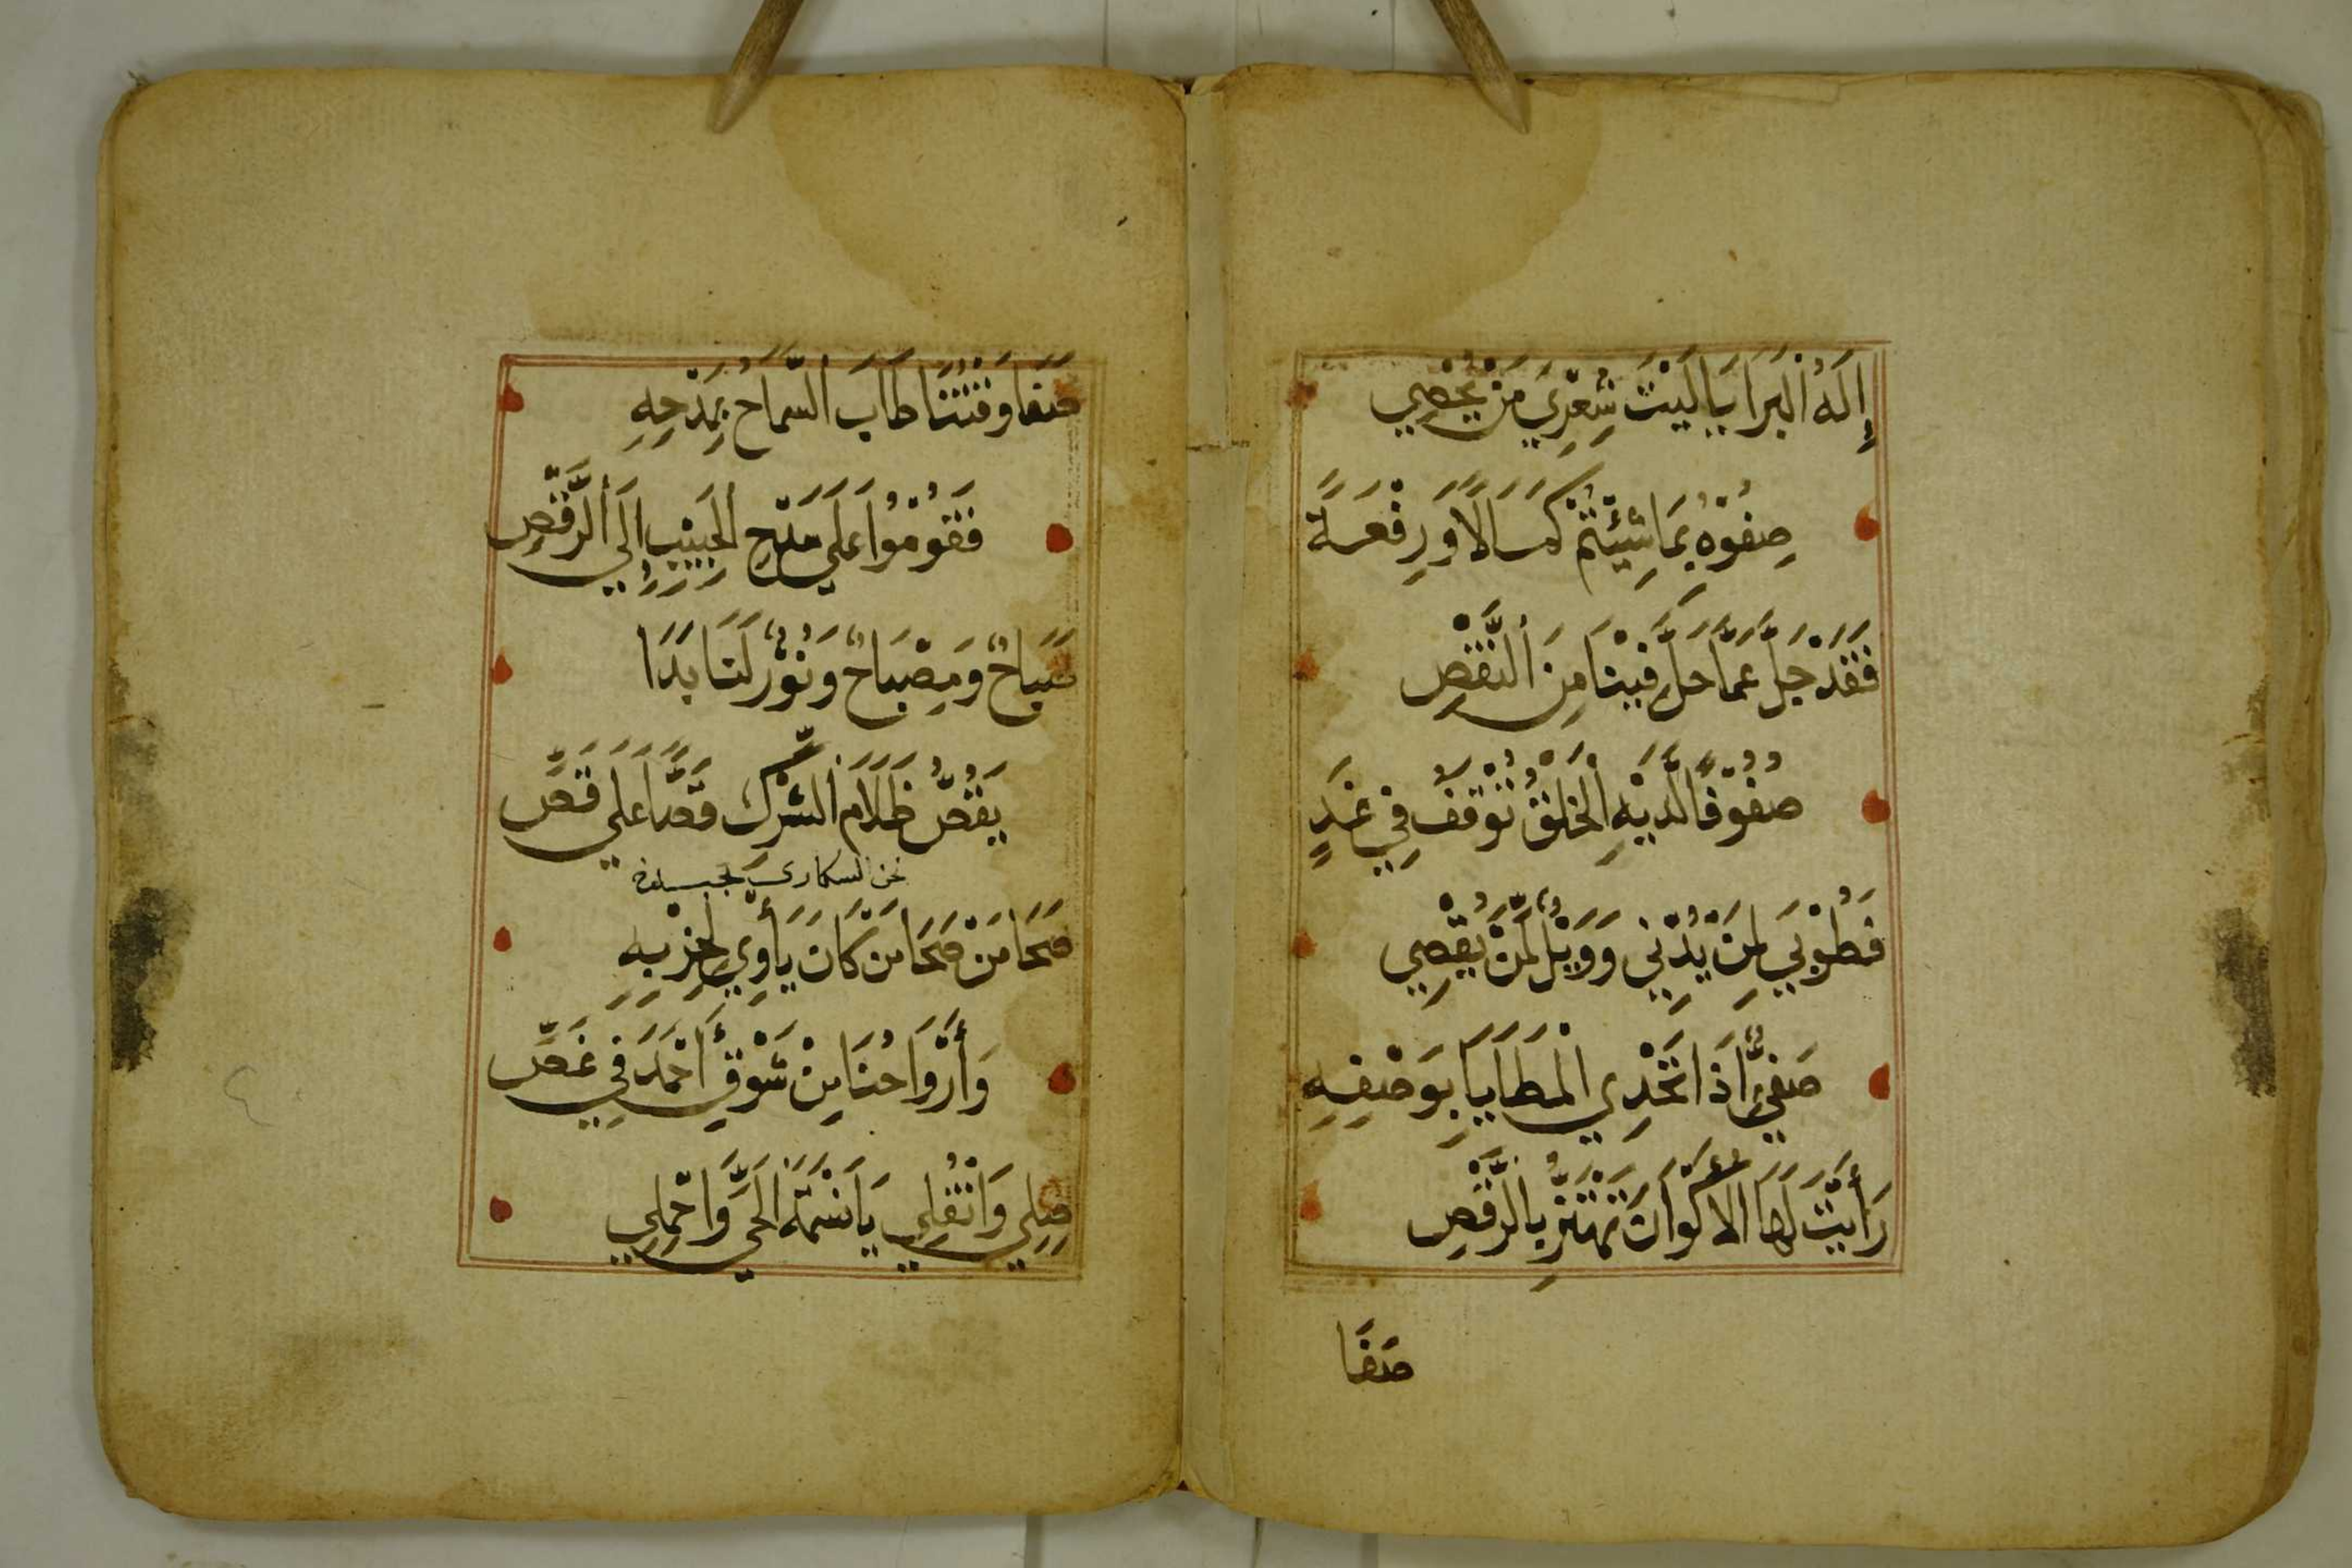 إِلَهُ اْلبَرَايَا لَيْتَ شِعْرِيَ مَنْ يُحْصِي
صِفُوْهُ بِمَا شِيْتُمْ كَمَالًا وَرِفْعَةً
فَقَدْ جَلَّ عَمَّا حَلَّ فِيْنَا مِنَ اْلنَّقْصِ
صُفُوْفًا لَدَيْهِ اْلخَلْقُ تُوْقَفُ فِي غَدٍ
فَطُوْبَي لِمَنْ يُدْنِي وَوَيْلٌ لِمَنْ يُقْصِي
صَفِيٌّ اِذَا تَحْدِي الْمَطَايَا بِوَصْفِهِ
رَأَيْتَ لَهَا الأَكْوَانَ تَهْتَزُّ بِالرَّقْصِ
صَفَا
صَفَا وَقْتُنَا طَابَ السَّمَاحُ بِمَدْحِهِ
فَقُوْمُوْا عَلَي مَدْحِ الْحَبِيْبِ اِلَي اْلرَّقْصِ
صَبَاحٌ وَمِصْبَاحٌ وَنُوْرٌ لَنَا بَدَا
يَقُصُّ ظَلَامَ الشِّرْكِ قَصًّا عَلَي قَصِّ
نحن السكاري بحب
صَحَا مَنْ صَحَا مَن كَانَ يَأْوِي لِحِزْبِهِ
وَأَرْوَاحُنَا مِنْ شَوْقِ أَحْمَدَ فِي غَصِّ
صِلِي وَانْقُلِي يَا نَسْمَةَ الْحَيِّ وَاحْمِلِي